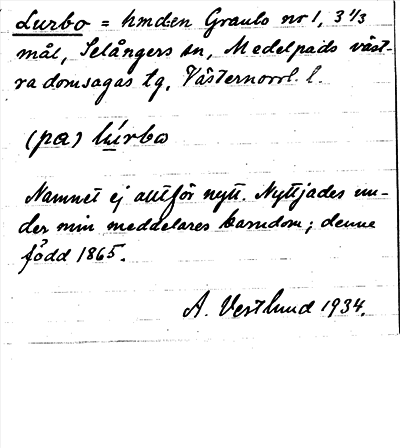 Lurbo = hmden Graulo nr 1, 3 1/3
mål, Selångers sn, Medelpads väst-
ra domsagas tg, Västernorrl. l.
(pa) lúrbo
Namnet ej alltför nytt. Nyttjades un-
der min meddelares barndom; denne
född 1865.
A. Vestlund 1934.